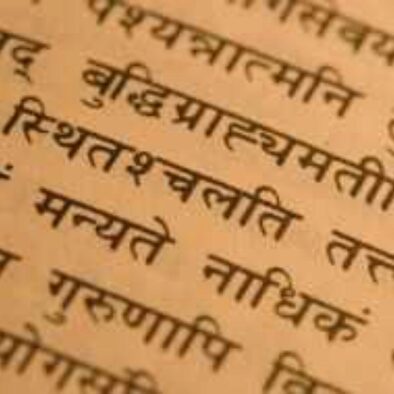 गसेवय
पश्यन्नात्मनि
द् बुद्धिग्राह्यमती
स्थितश्चलति तत्त
मन्यते नाधिकं
गुरुणापि वि
योगसं